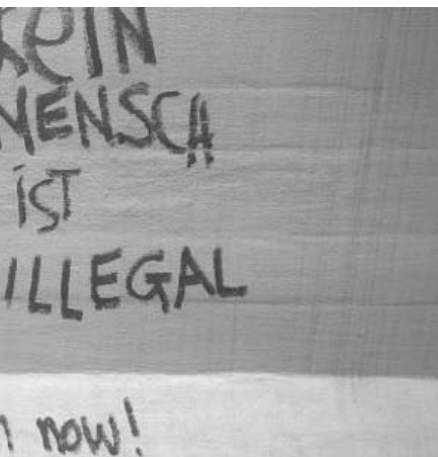 KeIN
MENSCH
IST
ILLEGAL
now!